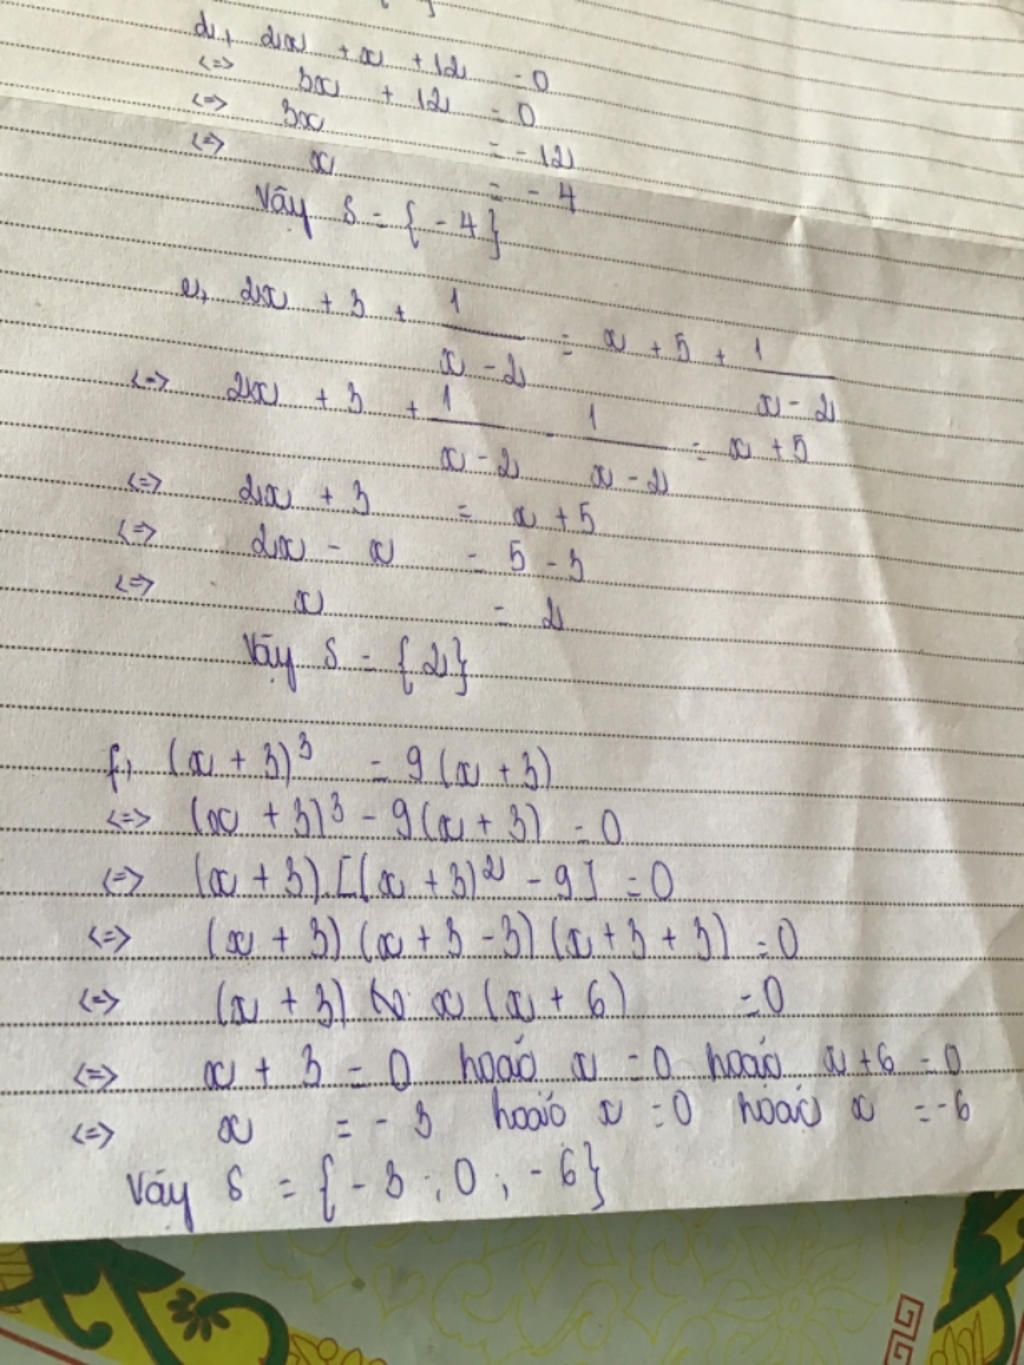 d, 2x + x + 12 = 0
<=> 3x + 12 = 0
<=> 3x = -12
<=> x = -4
Vậy S = {-4}
e, 2x + 3 + 1/(x - 2) = x + 5 + 1/(x - 2)
<=> 2x + 3 + 1/(x - 2) - 1/(x - 2) = x + 5
<=> 2x + 3 = x + 5
<=> 2x - x = 5 - 3
<=> x = 2
Vậy S = {2}
f, (x + 3)³ = 9(x + 3)
<=> (x + 3)³ - 9(x + 3) = 0
<=> (x + 3).[(x + 3)² - 9] = 0
<=> (x + 3)(x + 3 - 3)(x + 3 + 3) = 0
<=> (x + 3) x (x + 6) = 0
<=> x + 3 = 0 hoặc x = 0 hoặc x + 6 = 0
<=> x = -3 hoặc x = 0 hoặc x = -6
Vậy S = {-3; 0; -6}